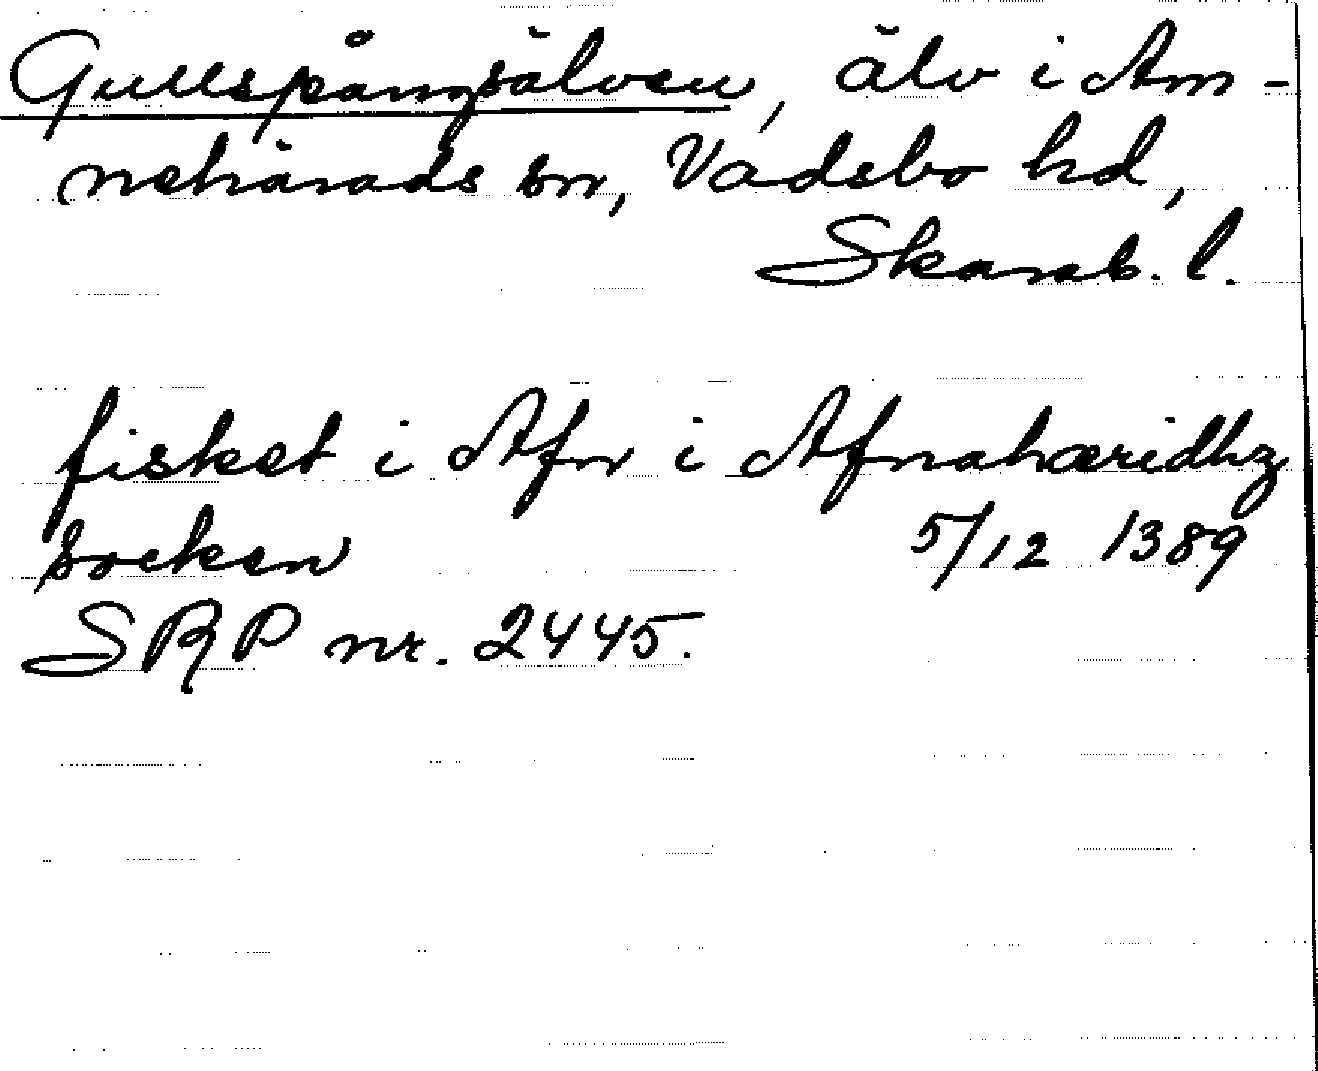 Gullspångsälven, älv i Am-
nehärads sn, Vadsbo hd,
Skarab. l.
fisket i Afn i Afnahæridhz
socken 5/12 1389
SRP nr. 2445.